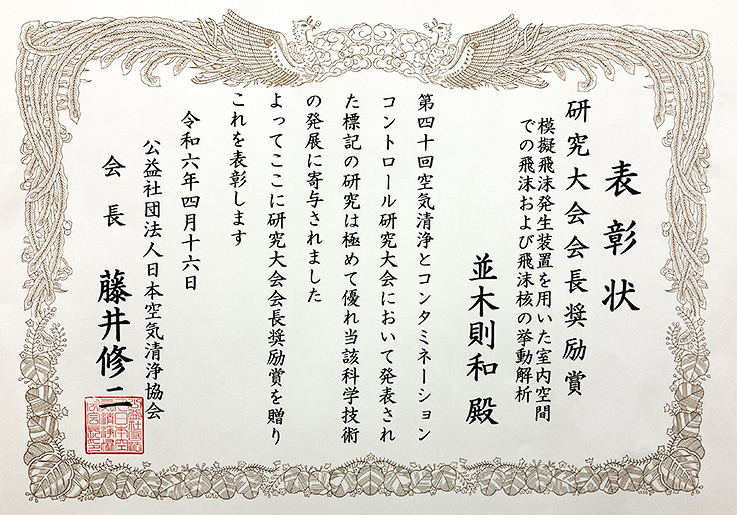 表彰状
研究大会会長奨励賞
模擬飛沫発生装置を用いた室内空間
での飛沫および飛沫核の挙動解析
並木則和殿
第四十回空気清浄とコンタミネーション
コントロール研究大会において発表され
た標記の研究は極めて優れ当該科学技術
の発展に寄与されました
よってここに研究大会会長奨励賞を贈り
これを表彰します
令和六年四月十六日
公益社団法人日本空気清浄協会
会長 藤井修二